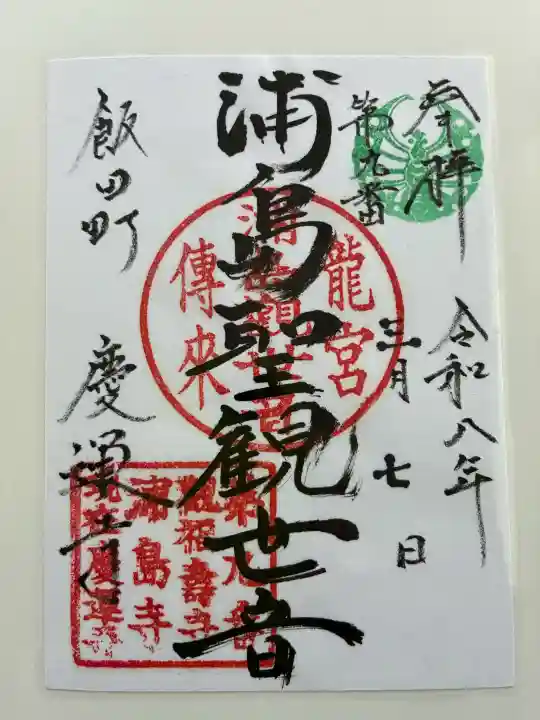 奉拝
第九番
令和八年
三月七日
浦島聖観世音
龍宮
浦島観世音
傳来
飯田町
慶運寺
第九番
観福壽寺
浦島寺